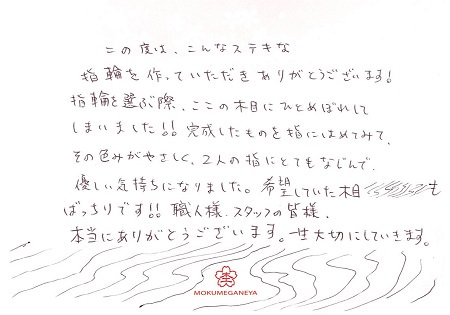 この度は、こんなステキな
指輪を作っていただきありがとうございます!
指輪を選ぶ際、ここの木目にひとめぼれして
しまいました!! 完成したものを指にはめてみて、
その色みがやさしく、2人の指にとてもなじんで、
優しい気持ちになりました。希望していた木目も
ばっちりです!! 職人様、スタッフの皆様、
本当にありがとうございます。一生大切にしていきます。
MOKUMEGANEYA